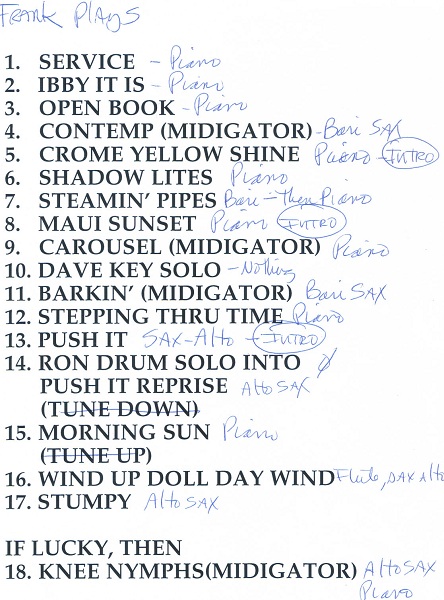 FRANK PLAYS
1. SERVICE - Piano
2. IBBY IT IS - Piano
3. OPEN BOOK - Piano
4. CONTEMP (MIDIGATOR) - Bari SAX
5. CROME YELLOW SHINE Piano - INTRO
6. SHADOW LITES Piano
7. STEAMIN' PIPES Bari - then Piano
8. MAUI SUNSET Piano INTRO
9. CAROUSEL (MIDIGATOR) Piano
10. DAVE KEY SOLO - Nothing
11. BARKIN' (MIDIGATOR) Bari SAX
12. STEPPING THRU TIME Piano
13. PUSH IT SAX-Alto - INTRO
14. RON DRUM SOLO INTO Ø
PUSH IT REPRISE Alto SAX
(TUNE DOWN)
15. MORNING SUN Piano
(TUNE UP)
16. WIND UP DOLL DAY WIND Flute, SAX Alto
17. STUMPY Alto SAX
IF LUCKY, THEN
18. KNEE NYMPHS(MIDIGATOR) Alto SAX
Piano